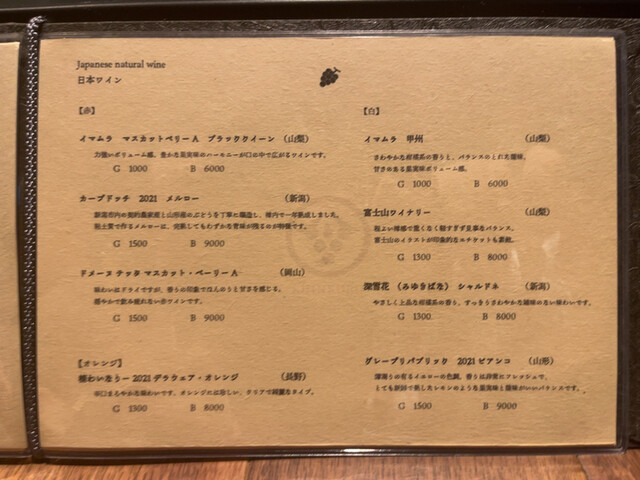 Japanese natural wine
日本ワイン
【赤】
イマムラ マスカットベリーA ブラッククイーン （山梨）
力強いボリューム感、豊かな果実味のハーモニーが口の中で広がるワインです。
G 1000 B 6000
カーブドッチ 2021 メルロー （新潟）
新潟市内の契約農家産と山形産のぶどうを丁寧に醸造し、樽内で一年熟成しました。
粘土質で作るメルローは、完熟してもわずかな青味が残るのが特徴です。
G 1500 B 9000
ドメーヌ テッタ マスカット・ベーリーA （岡山）
味わいはドライですが、香りの印象でほんのりと甘さを感じる。
穏やかで飲み疲れない赤ワインです。
G 1500 B 9000
【オレンジ】
2021デラウェア・オレンジ （長野）
辛口まろやかな味わいです。オレンジには珍しい、クリアで綺麗なタイプ。
G 1300 B 8000
【白】
イマムラ 甲州 （山梨）
さわやかな柑橘系の香りと、バランスのとれた酸味。
甘さのある果実味ボリューム感。
G 1000 B 6000
富士山ワイナリー （山梨）
程よい酸感で重くなく軽すぎず見事なバランス。
富士山のイラストが印象的なエチケットも素敵。
G 1300 B 8000
深雪花 （みゆきばな） シャルドネ （新潟）
やさしく上品な柑橘系の香り、すっきりさわやかな雑味のない味わいです。
G 1300 B 8000
グレープリパブリック 2021ビアンコ （山形）
深濁りの有るイエローの色調、香りは非常にフレッシュで、
とても新鮮で熟したレモンのような果実味と酸味がいいバランスです。
G 1500 B 9000